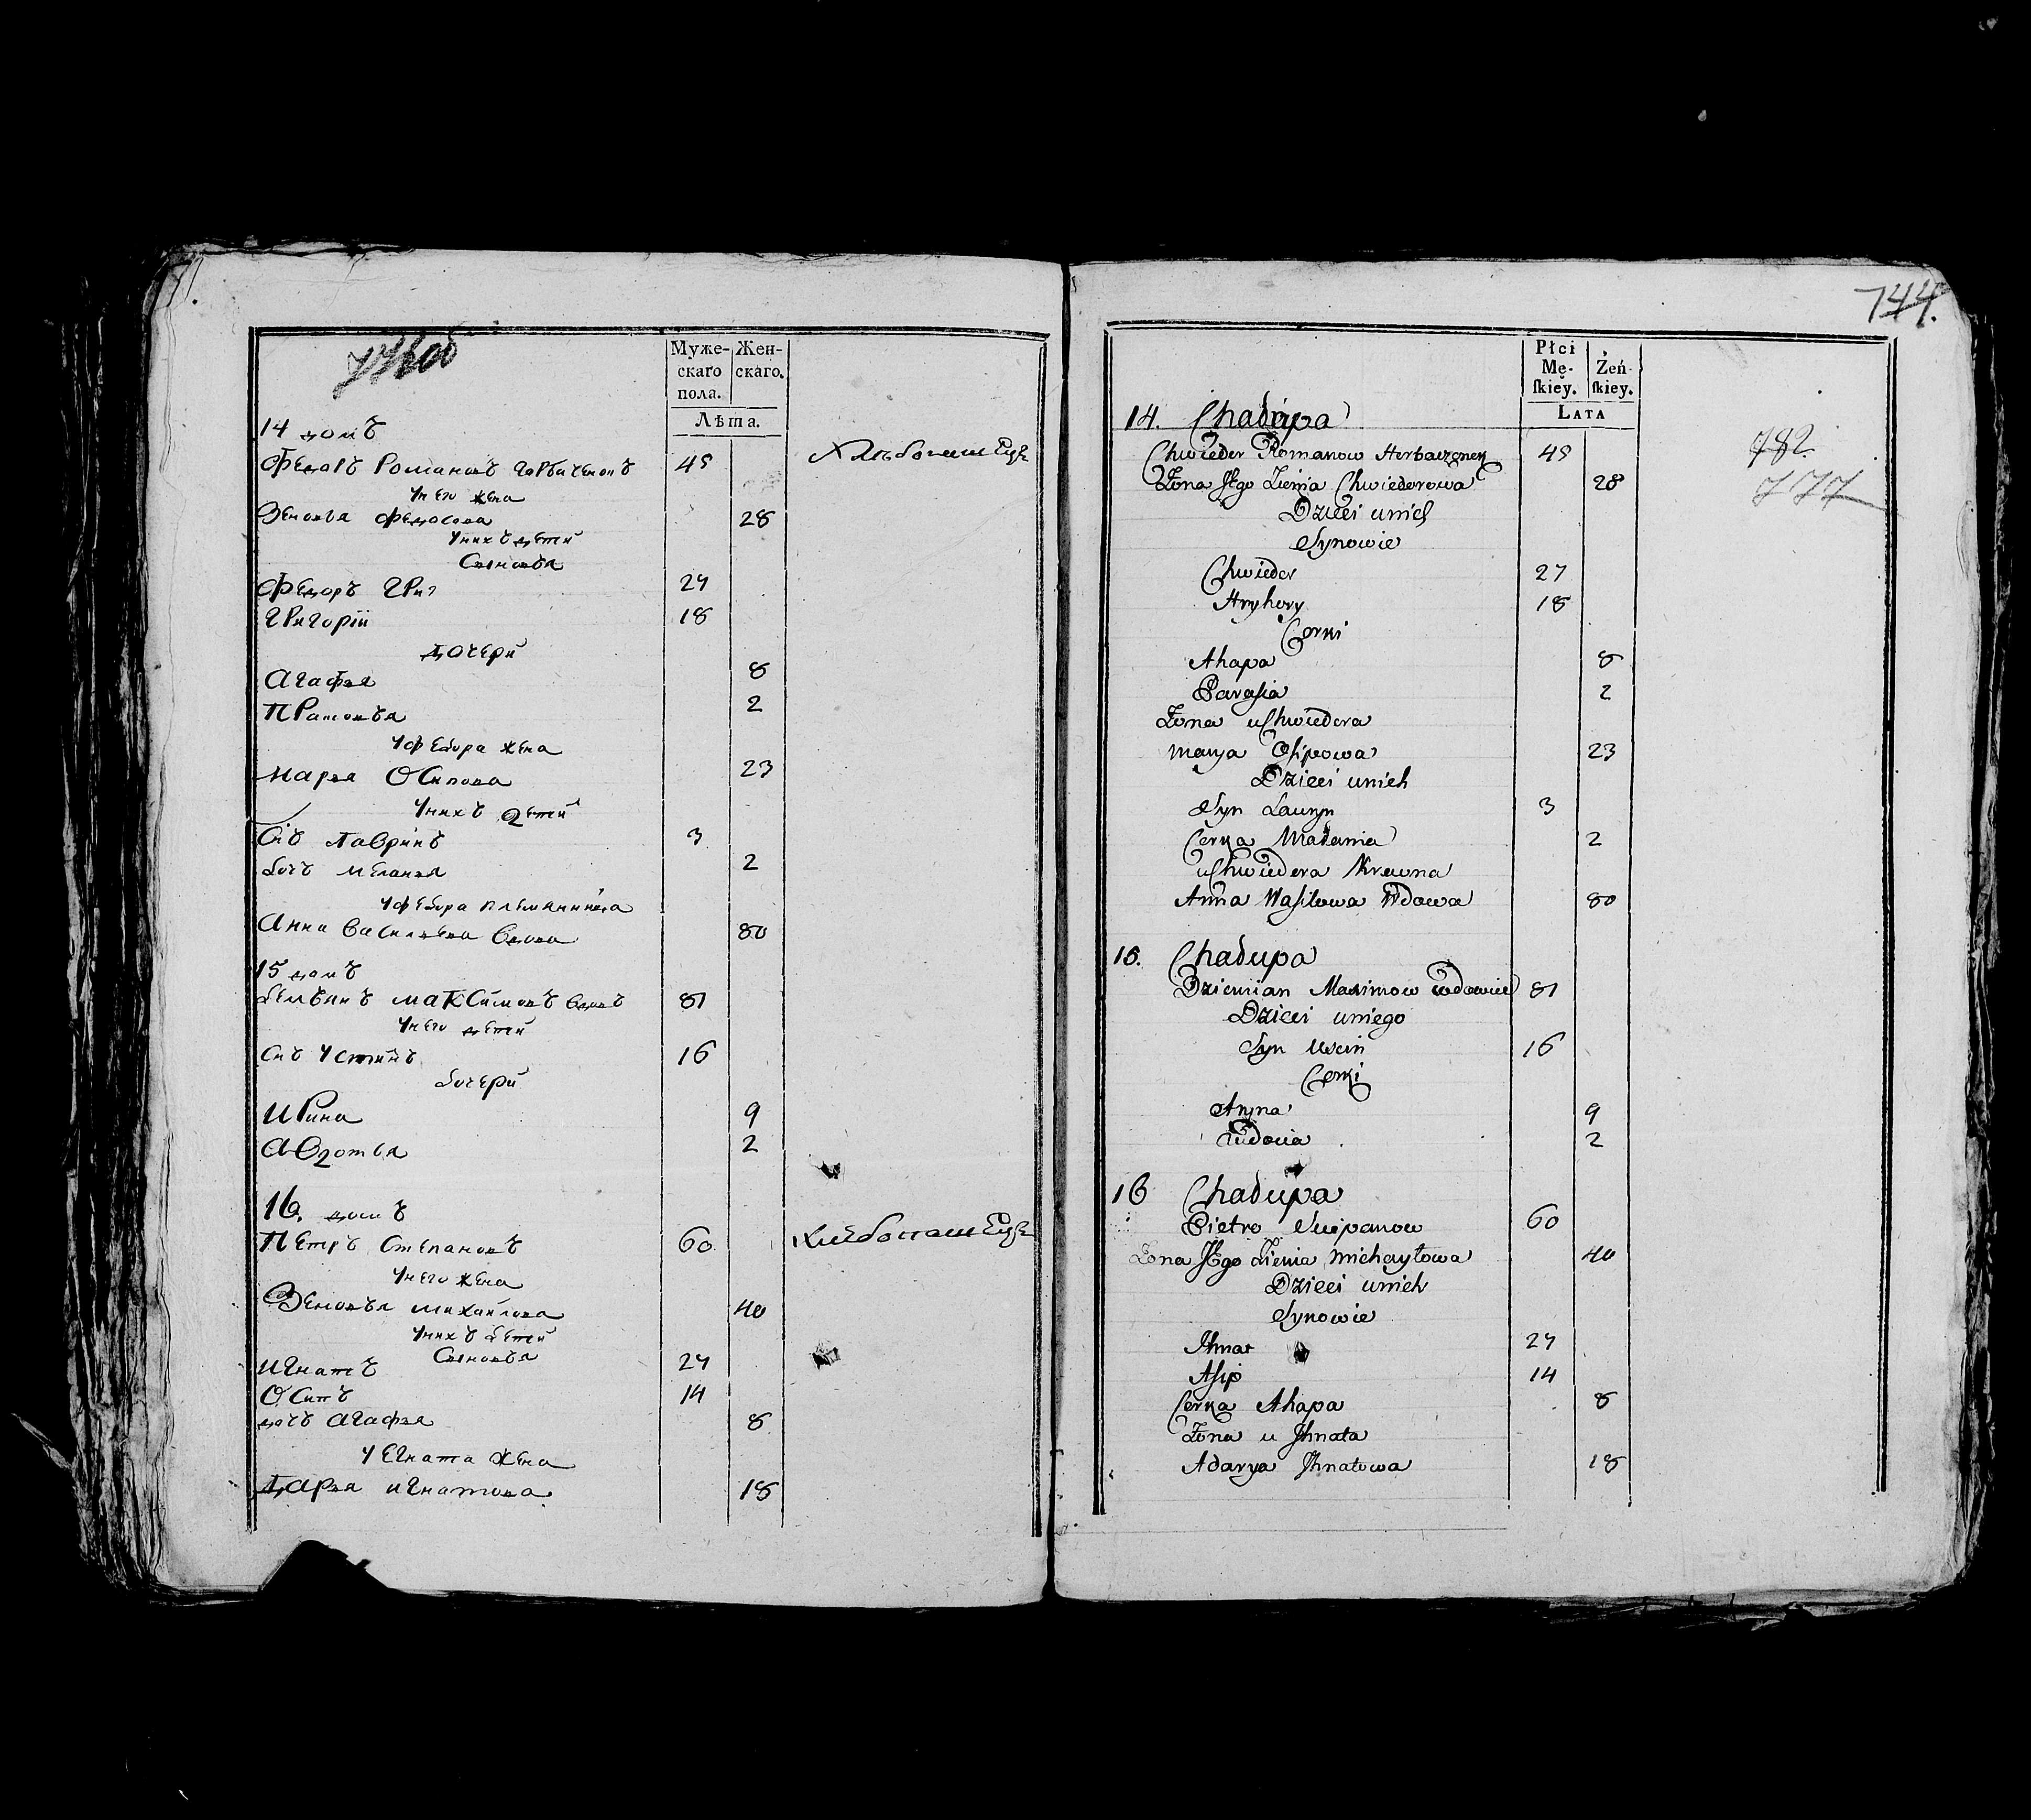 Муже-
скаго
пола.
Жен-
скаго.
Лѣта.
14 домъ
Федоръ Романовъ Горбаченокъ 45
У него жена
Зеновья Федосова 28
У нихъ детей
Сыновья
Федоръ Григ 27
Григорiй 18
дочери
Агафья 8
2
У Федора жена
Марья Осипова 23
У нихъ детей
Сiъ Лаврiнъ 3
дочъ Меланья 2
У Федора племянница
Анна Васильева вдова 80
15 домъ
Демьянъ Максимовъ вдовъ 81
У него детей
Сиъ Устинъ 16
дочери
Ирина 9
Авдотья 2
16. домъ
Петръ Степановъ 60
У него жена
Зеновья Михайлова 40
У нихъ детей
Сыновья
Игнатъ 27
Осипъ 14
дочъ Агафья 8
У Егната жена
Дарья Игнатова 18
744.
Płci
Mę-
skiey.
Żeń-
skiey.
Lata
782
777
14. Chadupa
Chwieder Romanow Horbaczonek 45
Żona Jego Zienia Chwiederowa 28
Dzieci unich
Synowie
Chwieder 27
Hryhory 18
Corki
Ahapa 8
Parasia 2
Żona uChwiedera
Marya Osipowa 23
Dzieci unich
Syn Lauryn 3
Corka Małania 2
uChwiedera Krewna
Anna Wasilowa Wdowa 80
15. Chadupa
Dziemian Maximow wdowiec 81
Dzieci uniego
Syn Uscin 16
Corki
Aryna 9
Audocia 2
16 Chadupa
Pietro Sciepanow 60
Żona Jego Zienia Michayłowa 40
Dzieci unich
Synowie
Ihnat 27
Asip 14
Corka Ahapa 8
Żona u Ihnata
Adarya Ihnatowa 18